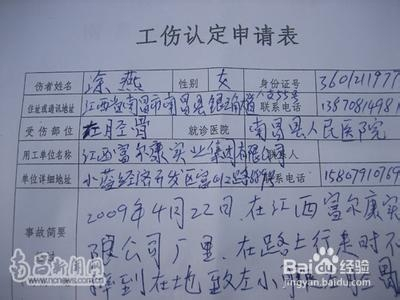 工伤认定申请表
伤者姓名 涂燕 性别 女 身份证号 360121197
住址或通讯地址 江西省南昌市南昌县 联系电话
受伤部位 左胫骨 就诊医院 南昌县人民医院
用工单位名称 江西富尔康实业集团有限公司 联系人
单位详细地址 小蓝经济开发区富山路 联系电话
事故简要 2009年4月22日,在江西富尔康实
限公司厂里,在路上行走时不
摔到在地致左小 骨
南昌新闻网
www.ncnews.com.cn
Baidu 经验